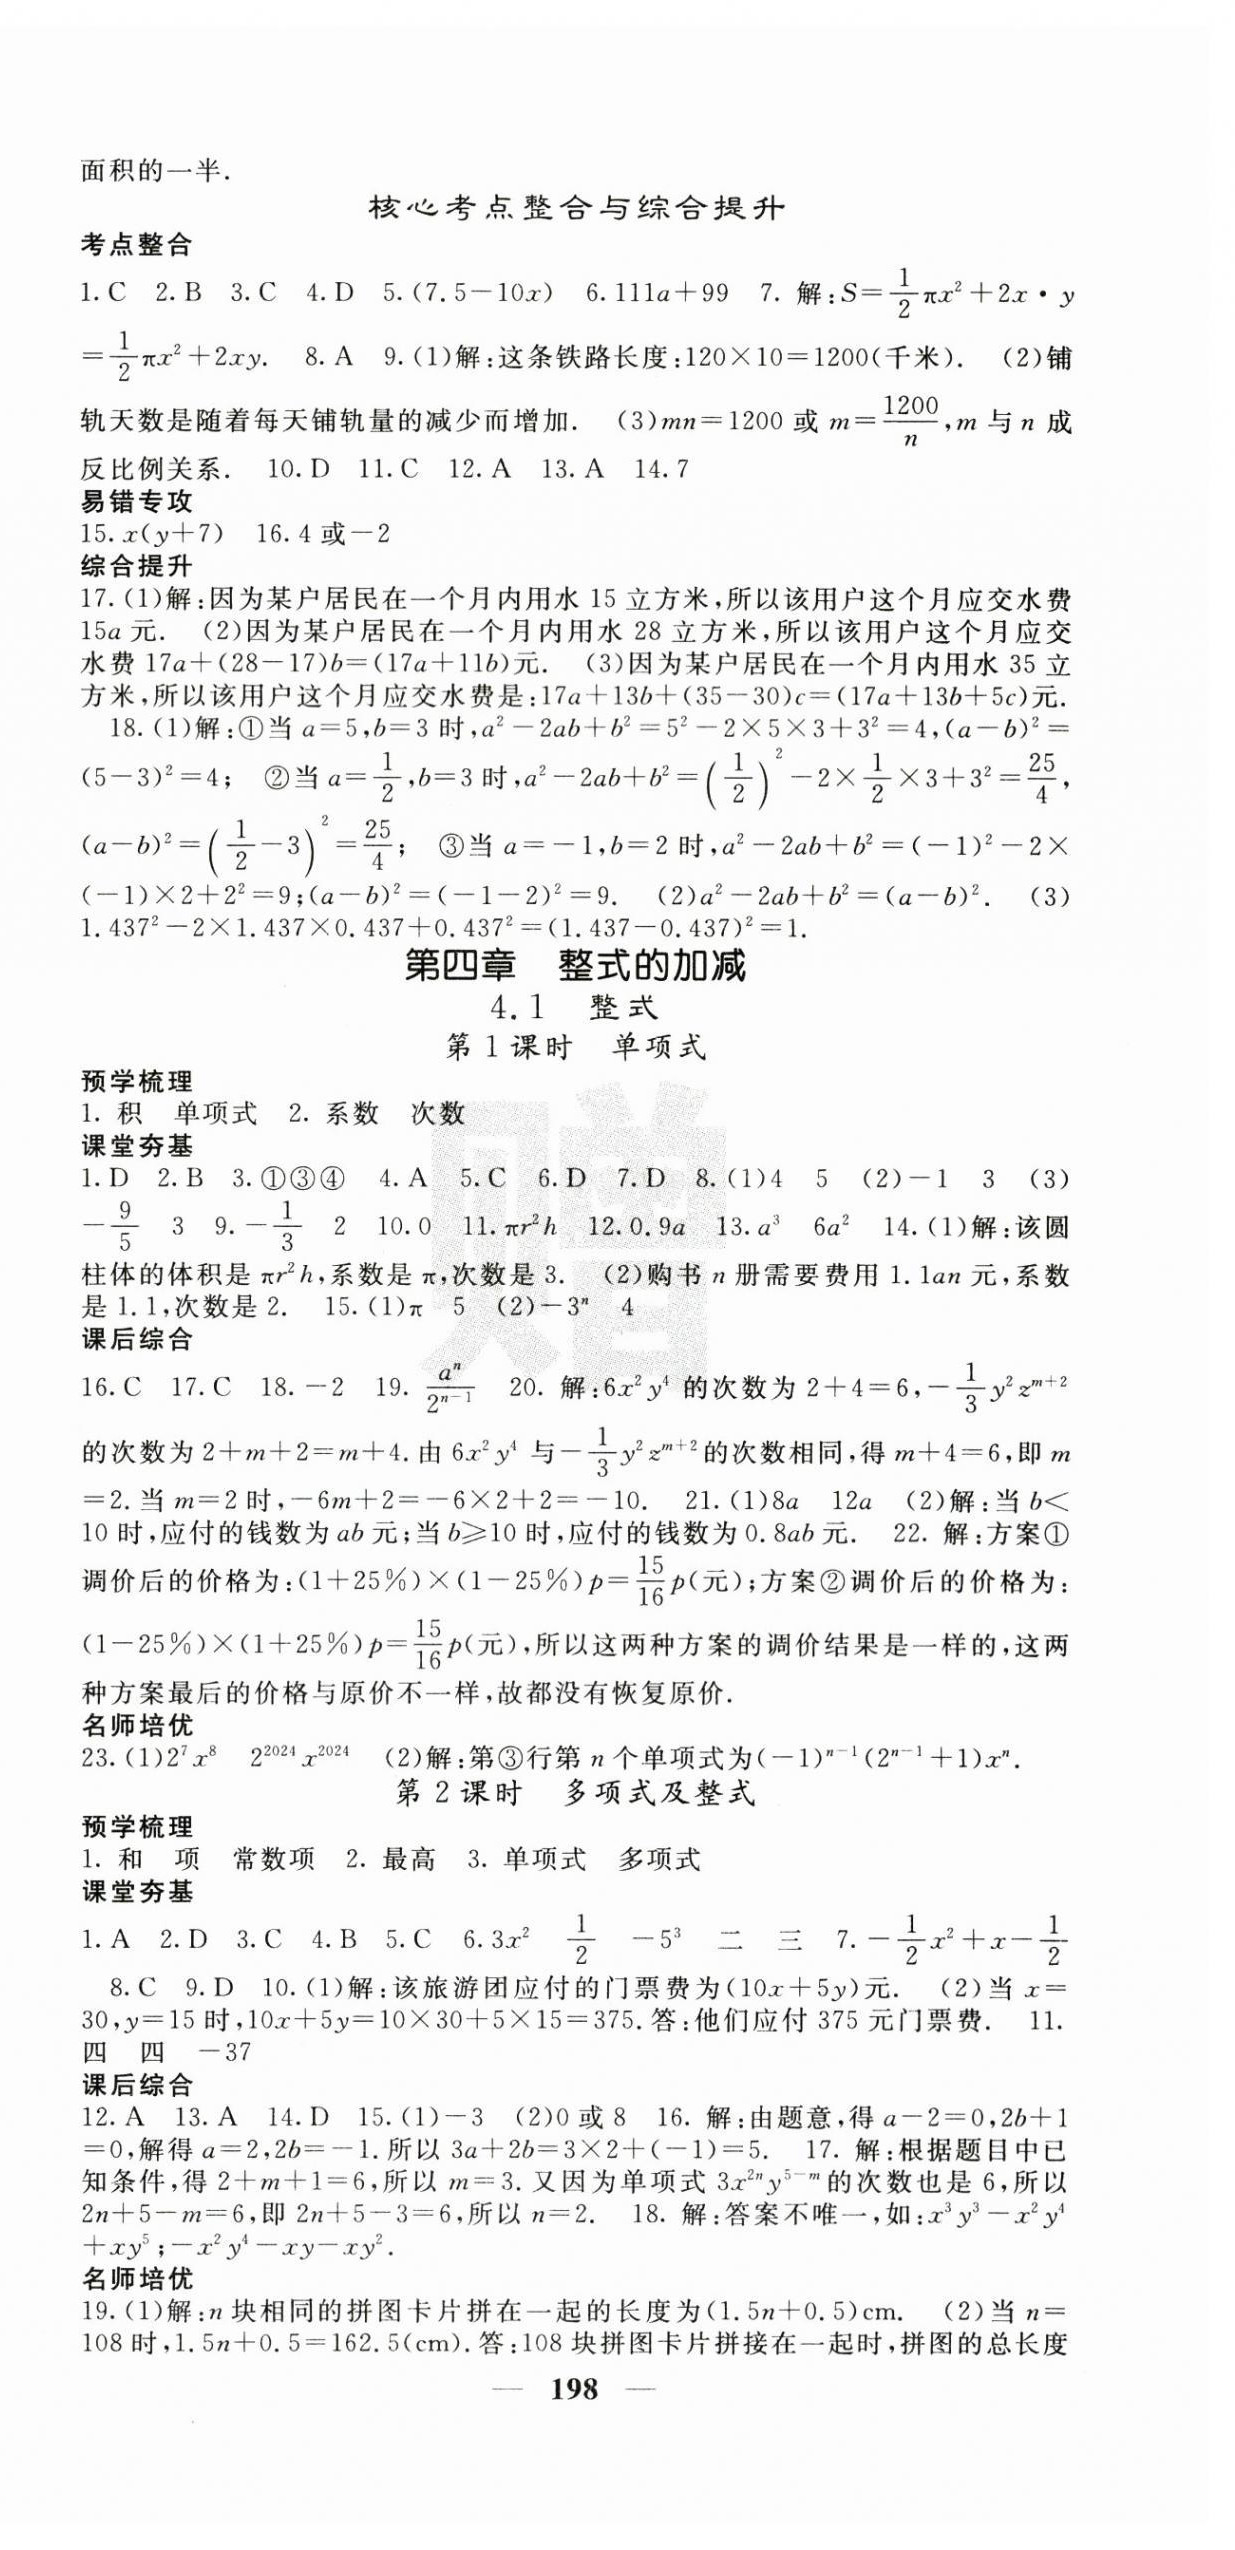 面积的一半.
核心考点整合与综合提升
考点整合
1.C 2.B 3.C 4.D 5.(7.5－10x) 6.111a＋99 7. 解:S＝1/2πx²＋2x·y
＝1/2πx²＋2xy. 8.A 9.(1)解:这条铁路长度:120×10＝1200(千米). (2)铺
轨天数是随着每天铺轨量的减少而增加. (3)mn＝1200 或 m＝1200/n,m 与 n 成
反比例关系. 10.D 11.C 12.A 13.A 14.7
易错专攻
15.x(y＋7) 16.4 或－2
综合提升
17.(1)解:因为某户居民在一个月内用水 15 立方米,所以该用户这个月应交水费
15a 元. (2)因为某户居民在一个月内用水 28 立方米,所以该用户这个月应交
水费 17a＋(28－17)b＝(17a＋11b)元. (3)因为某户居民在一个月内用水 35 立
方米,所以该用户这个月应交水费是:17a＋13b＋(35－30)c＝(17a＋13b＋5c)元.
18.(1)解:①当 a＝5,b＝3 时,a²－2ab＋b²＝5²－2×5×3＋3²＝4,(a－b)²＝
(5－3)²＝4; ②当 a＝1/2,b＝3 时,a²－2ab＋b²＝(1/2)²－2×1/2×3＋3²＝25/4,
(a－b)²＝(1/2－3)²＝25/4; ③当 a＝－1,b＝2 时,a²－2ab＋b²＝(－1)²－2×
(－1)×2＋2²＝9;(a－b)²＝(－1－2)²＝9. (2)a²－2ab＋b²＝(a－b)². (3)
1.437²－2×1.437×0.437＋0.437²＝(1.437－0.437)²＝1.
第四章 整式的加减
4.1 整式
第1课时 单项式
预学梳理
1. 积 单项式 2. 系数 次数
课堂夯基
1.D 2.B 3.①③④ 4.A 5.C 6.D 7.D 8.(1)4 5 (2)－1 3 (3)
－9/5 3 9.－1/3 2 10.0 11.πr²h 12.0.9a 13.a³ 6a² 14.(1)解:该圆
柱体的体积是 πr²h,系数是 π,次数是 3. (2)购书 n 册需要费用 1.1an 元,系数
是 1.1,次数是 2. 15.(1)π 5 (2)－3ⁿ 4
课后综合
16.C 17.C 18.－2 19. aⁿ/2ⁿ⁻¹ 20. 解:6x²y⁴ 的次数为 2＋4＝6,－1/3y²zᵐ⁺²
的次数为 2＋m＋2＝m＋4.由 6x²y⁴ 与－1/3y²zᵐ⁺²的次数相同,得 m＋4＝6,即 m
＝2.当 m＝2 时,－6m＋2＝－6×2＋2＝－10. 21.(1)8a 12a (2)解:当 b＜
10 时,应付的钱数为 ab 元;当 b≥10 时,应付的钱数为 0.8ab 元. 22. 解:方案①
调价后的价格为:(1＋25%)×(1－25%)p＝15/16p(元);方案②调价后的价格为:
(1－25%)×(1＋25%)p＝15/16p(元),所以这两种方案的调价结果是一样的,这两
种方案最后的价格与原价不一样,故都没有恢复原价.
名师培优
23.(1)2⁷x⁸ 2²⁰²⁴x²⁰²⁴ (2)解:第③行第 n 个单项式为(－1)ⁿ⁻¹(2ⁿ⁻¹＋1)xⁿ.
第2课时 多项式及整式
预学梳理
1. 和 项 常数项 2. 最高 3. 单项式 多项式
课堂夯基
1.A 2.D 3.C 4.B 5.C 6.3x² 1/2 －5³ 二 三 7.－1/2x²＋x－1/2
8.C 9.D 10.(1)解:该旅游团应付的门票费为(10x＋5y)元. (2)当 x＝
30,y＝15 时,10x＋5y＝10×30＋5×15＝375.答:他们应付 375 元门票费. 11.
四 四 －37
课后综合
12.A 13.A 14.D 15.(1)－3 (2)0 或 8 16. 解:由题意,得 a－2＝0,2b＋1
＝0,解得 a＝2,2b＝－1.所以 3a＋2b＝3×2＋(－1)＝5. 17. 解:根据题目中已
知条件,得 2＋m＋1＝6,所以 m＝3.又因为单项式 3x²ⁿy⁵⁻ᵐ的次数也是 6,所以
2n＋5－m＝6,即 2n＋5－3＝6,所以 n＝2. 18. 解:答案不唯一,如:x³y³－x²y⁴
＋xy⁵;－x²y⁴－xy－xy².
名师培优
19.(1)解:n 块相同的拼图卡片拼在一起的长度为(1.5n＋0.5)cm. (2)当 n＝
108 时,1.5n＋0.5＝162.5(cm).答:108 块拼图卡片拼接在一起时,拼图的总长度
— 198 —
赠